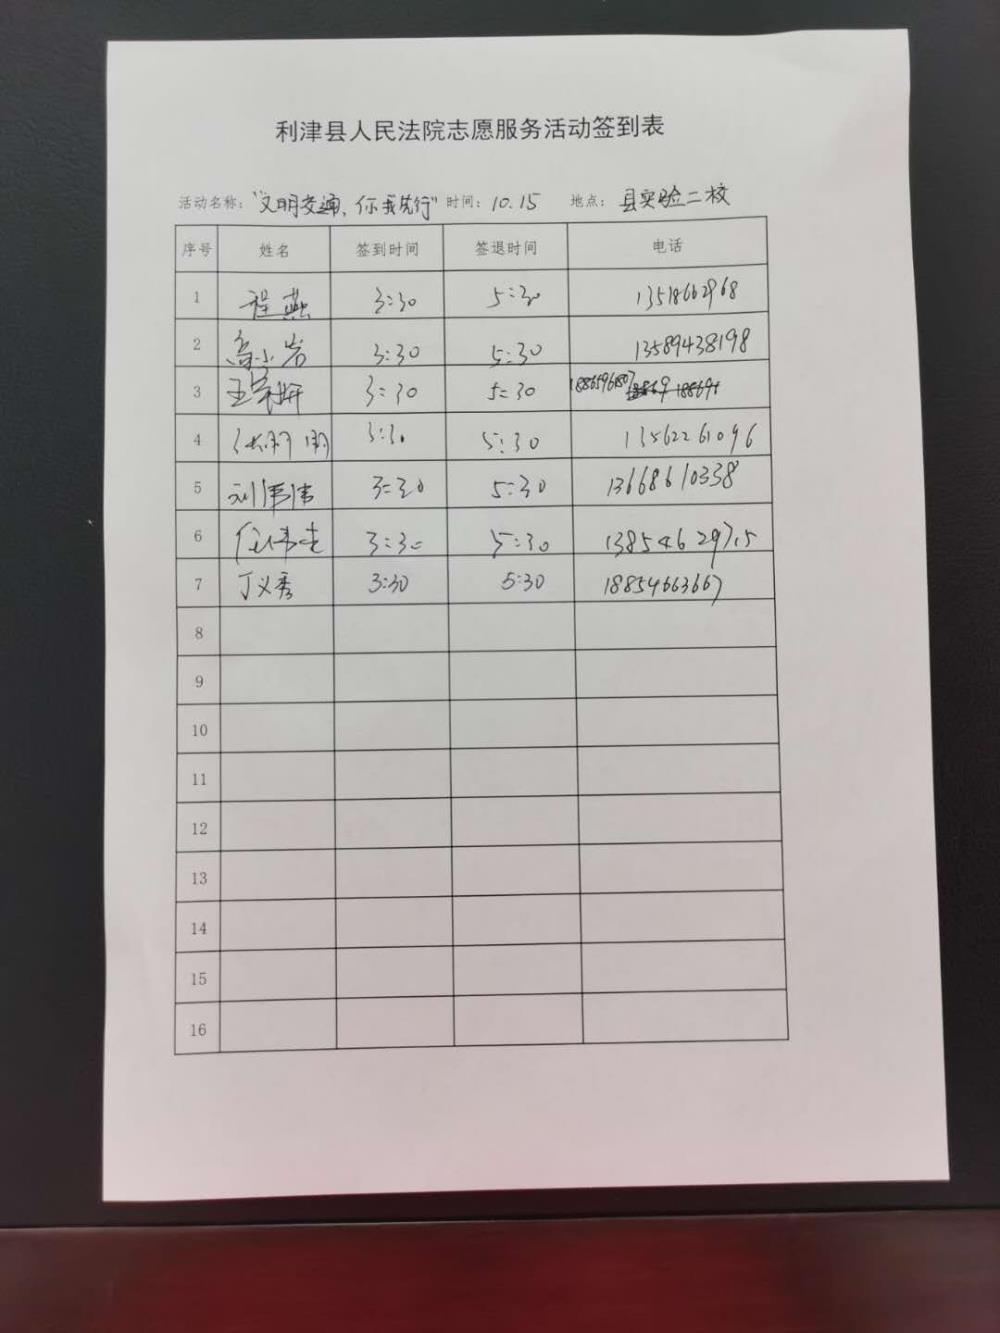 利津县人民法院志愿服务活动签到表
活动名称："文明交通，你我先行" 时间：10.15 地点：县实验二校
序号 姓名 签到时间 签退时间 电话
1 程燕 3:30 5:30 13518662968
2 高小岩 3:30 5:30 13589438198
3 3:30 5:30 18865961807
4 3:30 5:30 13562261096
5 刘伟伟 3:30 5:30 13668610338
6 任伟志 3:30 5:30 13854629715
7 丁义秀 3:30 5:30 18854663667
8
9
10
11
12
13
14
15
16